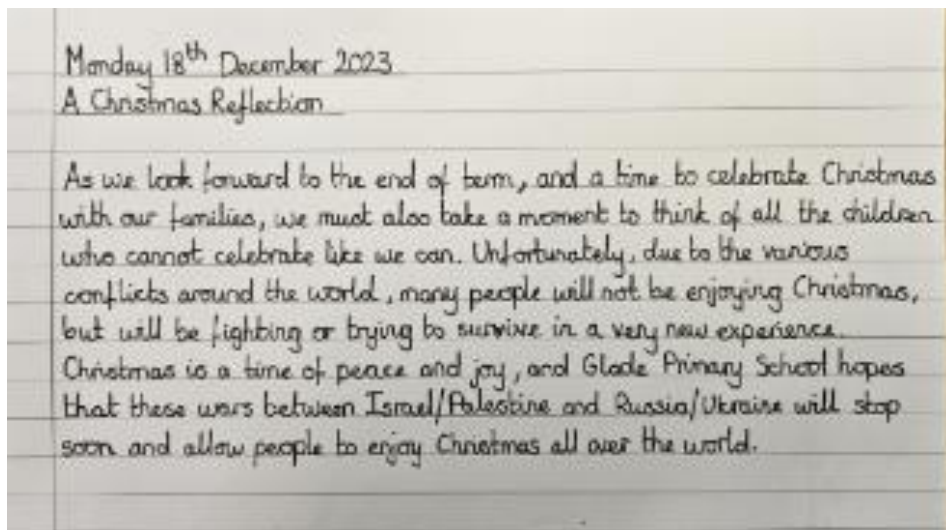 Monday 18th December 2023
A Christmas Reflection
As we look forward to the end of term, and a time to celebrate Christmas
with our families, we must also take a moment to think of all the children
who cannot celebrate like we can. Unfortunately, due to the various
conflicts around the world, many people will not be enjoying Christmas,
but will be fighting or trying to survive in a very new experience.
Christmas is a time of peace and joy, and Glade Primary School hopes
that these wars between Israel/Palestine and Russia/Ukraine will stop
soon and allow people to enjoy Christmas all over the world.